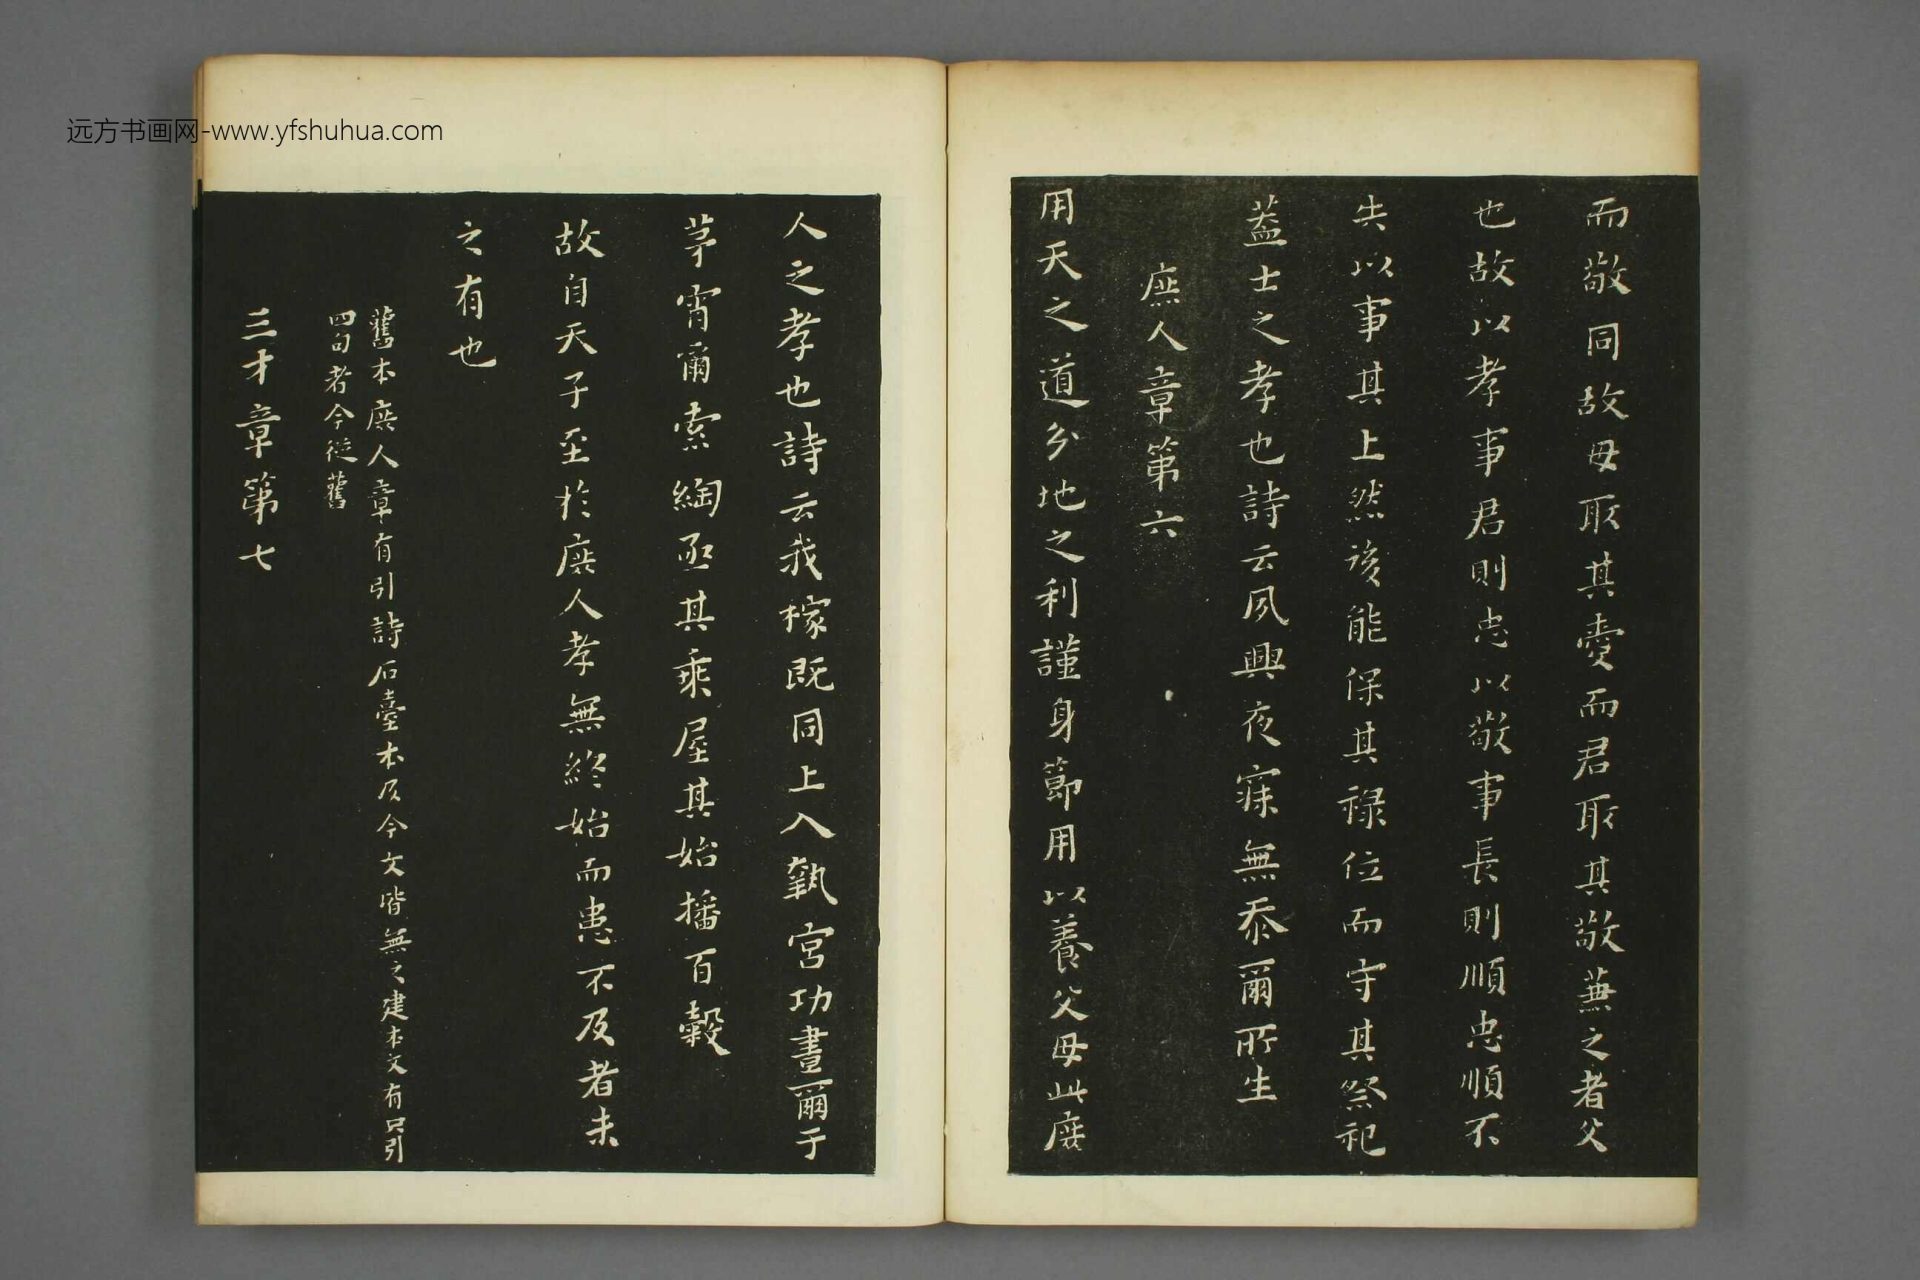 远方书画网-www.yfshuhua.com
而敬同故母取其愛而君取其敬兼之者父
也故以孝事君則忠以敬事長則順忠順不
失以事其上然後能保其祿位而守其祭祀
蓋士之孝也詩云夙興夜寐無忝爾所生
庶人章第六
用天之道分地之利謹身節用以養父母此庶
人之孝也詩云我稼既同上入執宮功晝爾于
茅宵爾索綯亟其乘屋其始播百穀
故自天子至於庶人孝無終始而患不及者未
之有也
舊本庶人章有引詩石臺本及今文皆無之建本文有只引
四句者今從舊
三才章第七